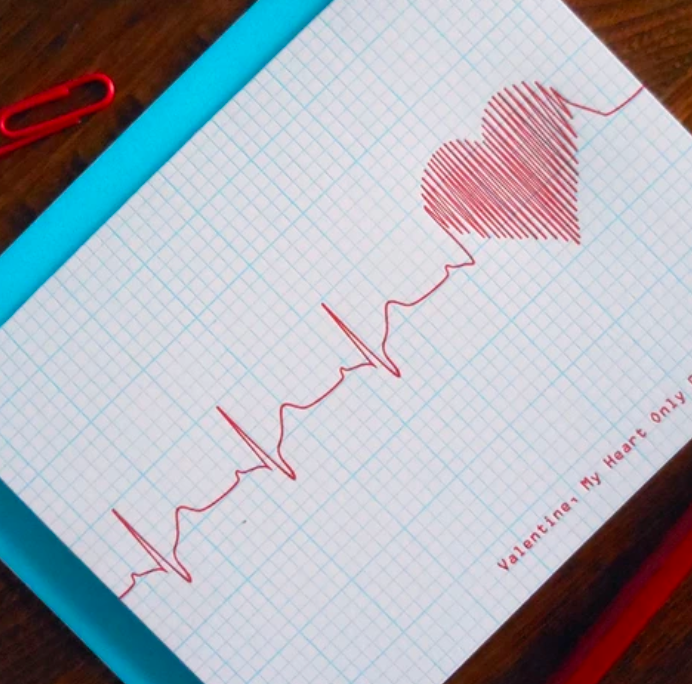 Valentine, My Heart Only